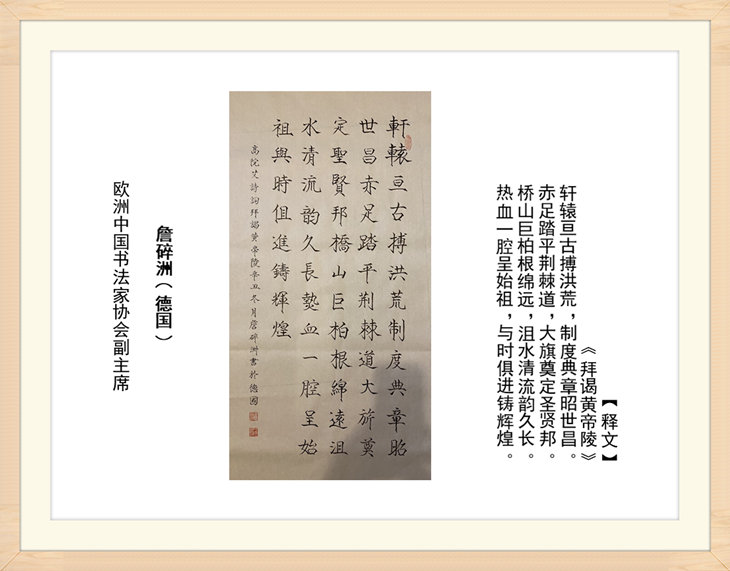 【释文】
《拜谒黄帝陵》
轩辕亘古搏洪荒，制度典章昭世昌。
赤足踏平荆棘道，大旗奠定圣贤邦。
桥山巨柏根绵远，沮水清流韵久长。
热血一腔呈始祖，与时俱进铸辉煌。
軒轅亘古搏洪荒制度典章昭
世昌赤足踏平荆棘道大旂奠
定聖賢邦橋山巨柏根綿遠沮
水清流韵久長熱血一腔呈始
祖與時俱進鑄輝煌
高院艾詩詞拜謁黄帝陵辛丑冬月詹碎洲書於德國
詹碎洲（德国）
欧洲中国书法家协会副主席